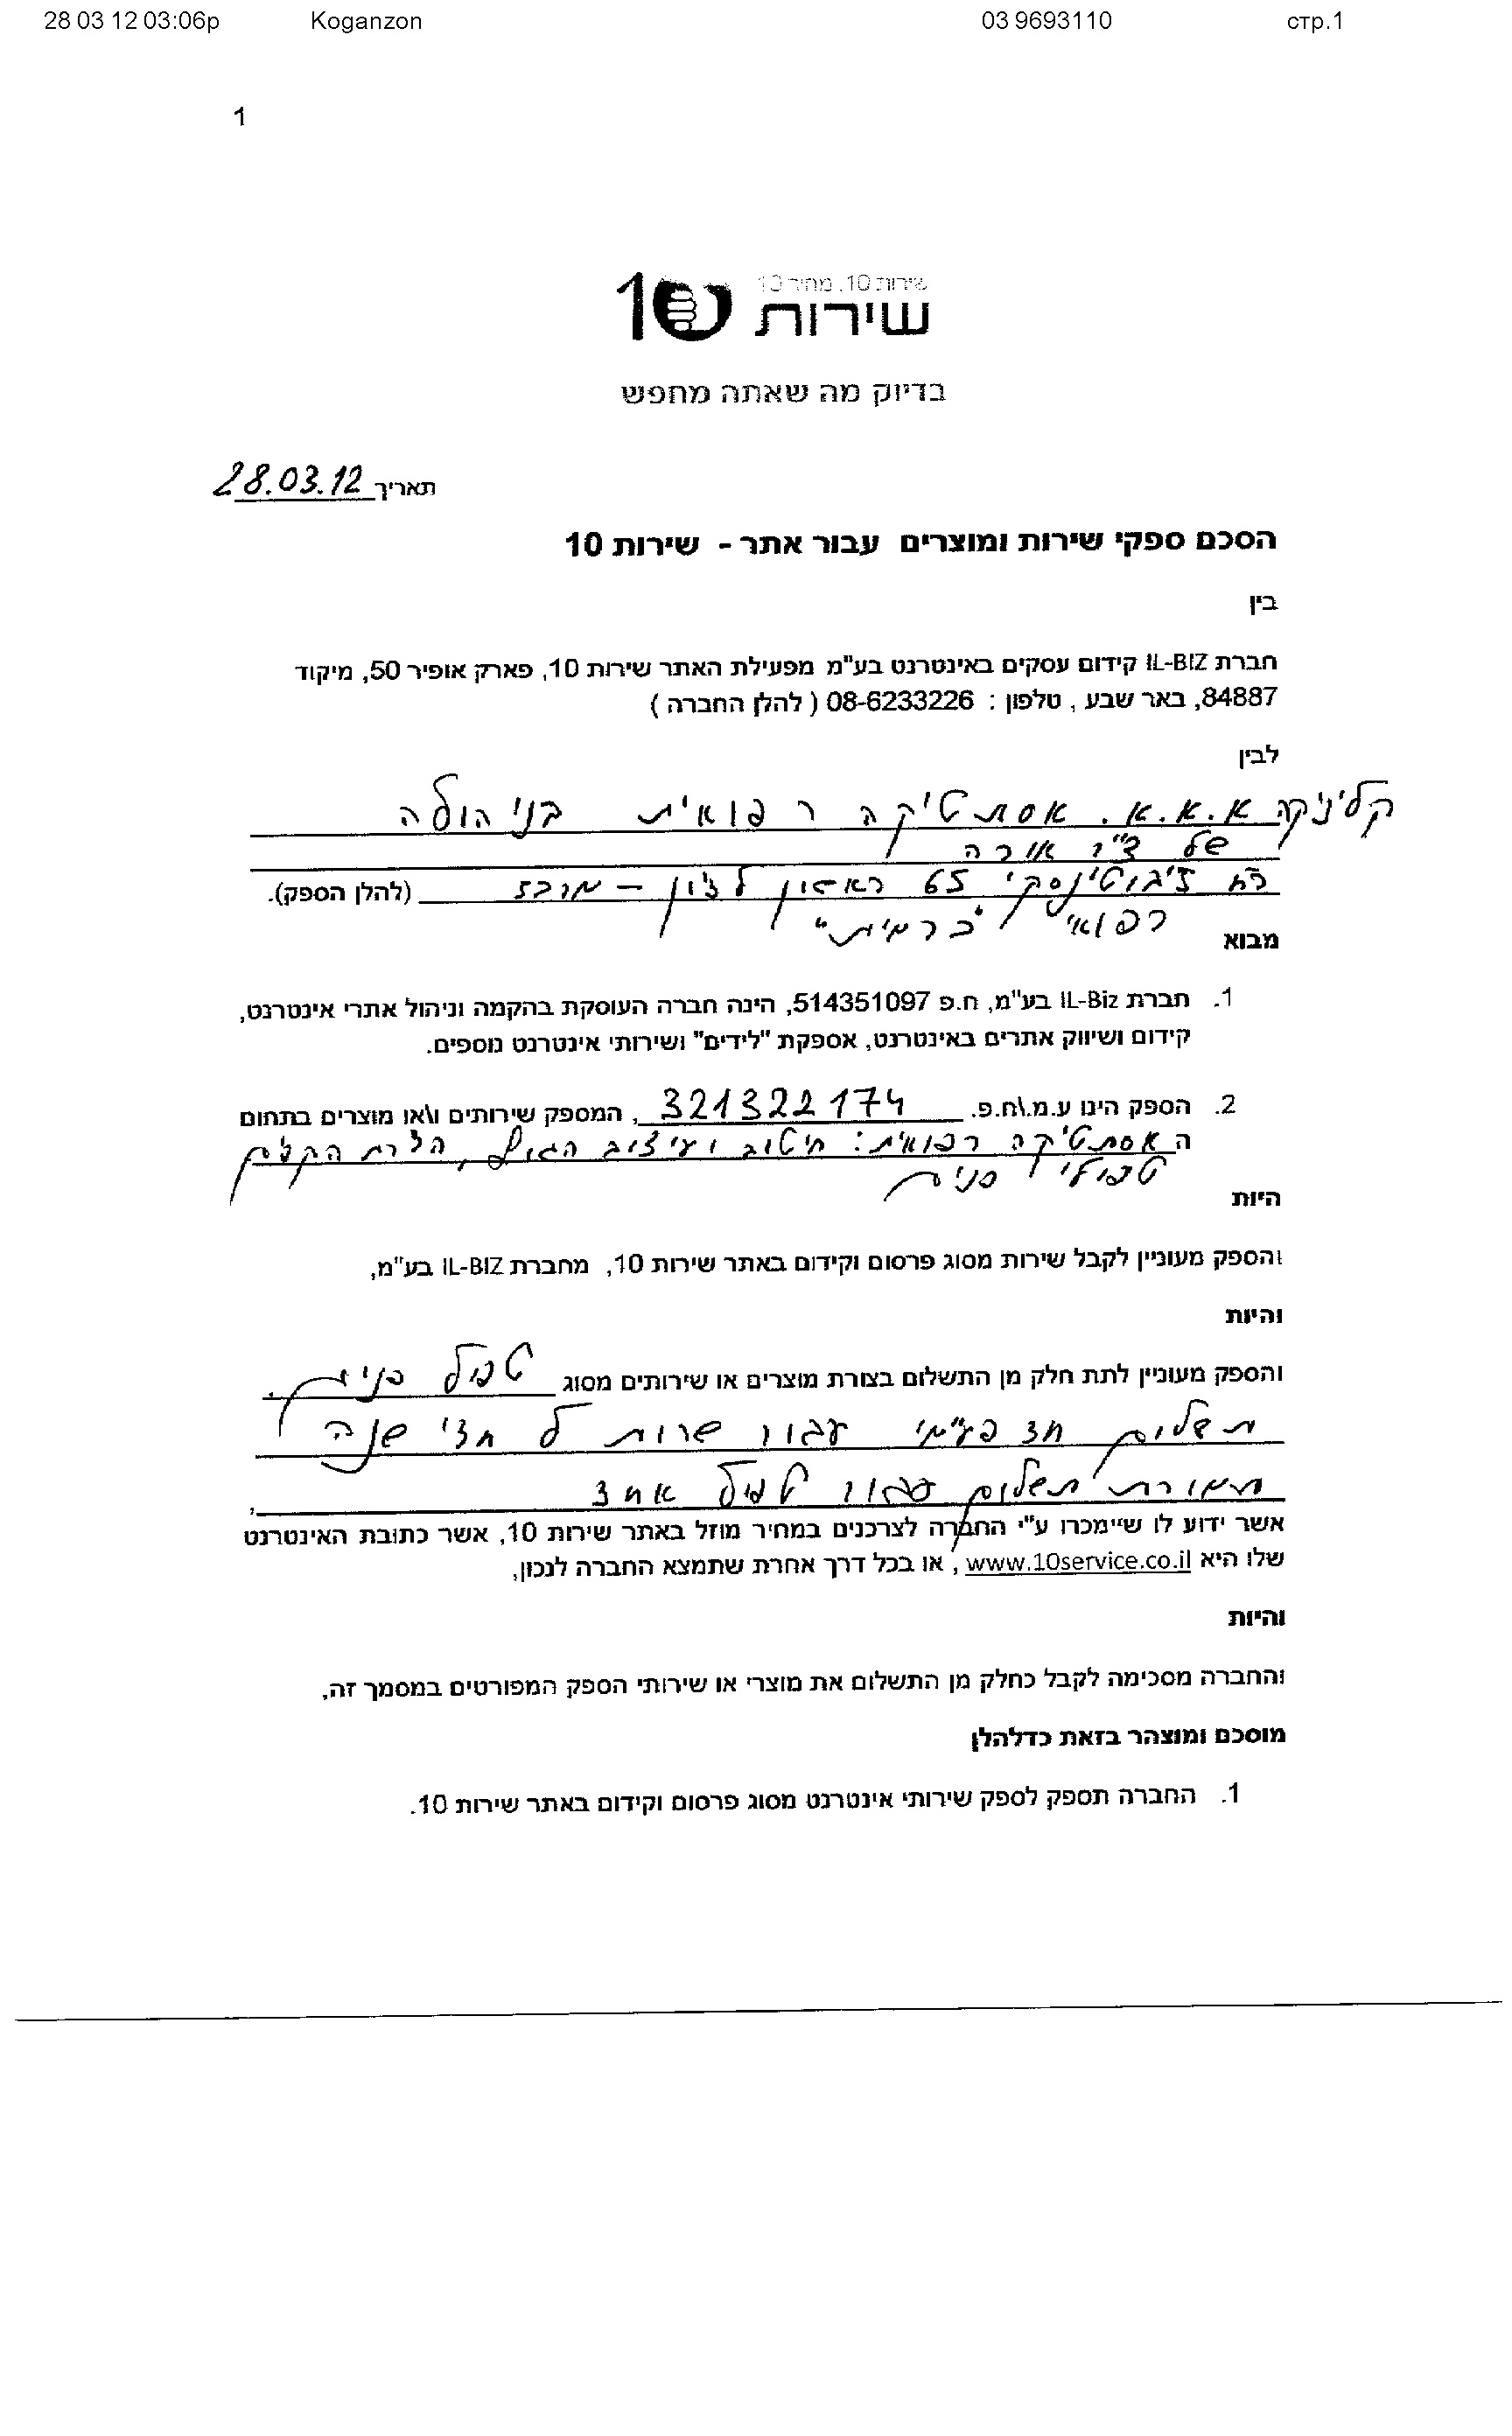 28 03 12 03:06p Koganzon 03 9693110 стр.1
1
שירות 10, מחיר 10
שירות 10
בדיוק מה שאתה מחפש
תאריך 28.03.12
הסכם ספקי שירות ומוצרים עבור אתר - שירות 10
בין
חברת IL-BIZ קידום עסקים באינטרנט בע"מ מפעילת האתר שירות 10, פארק אופיר 50, מיקוד
84887, באר שבע , טלפון : 08-6233226 ( להלן החברה )
לבין
קליניקה א.א.א. אסתטיקה רפואית
של אורה
ז'בוטינסקי 65 ראשון לציון – מרכז (להלן הספק).
רפואי "כרמית"
מבוא
1. חברת IL-Biz בע"מ, ח.פ 514351097, הינה חברה העוסקת בהקמה וניהול אתרי אינטרנט,
קידום ושיווק אתרים באינטרנט, אספקת "לידים" ושירותי אינטרנט נוספים.
2. הספק הינו ע.מ.\ח.פ. 321322174 , המספק שירותים ו\או מוצרים בתחום
האסתטיקה רפואית: חיטוב ועיצוב הגוף,
טפולי פנים
היות
והספק מעוניין לקבל שירות מסוג פרסום וקידום באתר שירות 10, מחברת IL-BIZ בע"מ,
והיות
והספק מעוניין לתת חלק מן התשלום בצורת מוצרים או שירותים מסוג טפול פנים.
תשלום חד פעמי עבור שרות ל חצי שנה
תמורת תשלום עבור טפול אחד,
אשר ידוע לו שיימכרו ע"י החברה לצרכנים במחיר מוזל באתר שירות 10, אשר כתובת האינטרנט
שלו היא www.10service.co.il , או בכל דרך אחרת שתמצא החברה לנכון,
והיות
והחברה מסכימה לקבל כחלק מן התשלום את מוצרי או שירותי הספק המפורטים במסמך זה,
מוסכם ומוצהר בזאת כדלהלן
1. החברה תספק לספק שירותי אינטרנט מסוג פרסום וקידום באתר שירות 10.